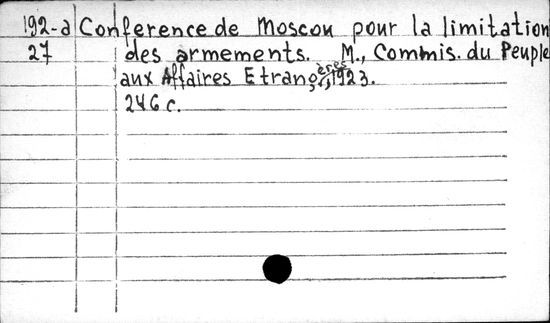 192-d Conference de Moscou pour la limitation
27 des armements. M., Commis. du Peuple
aux Affaires Etrangères, 1923.
246 c.